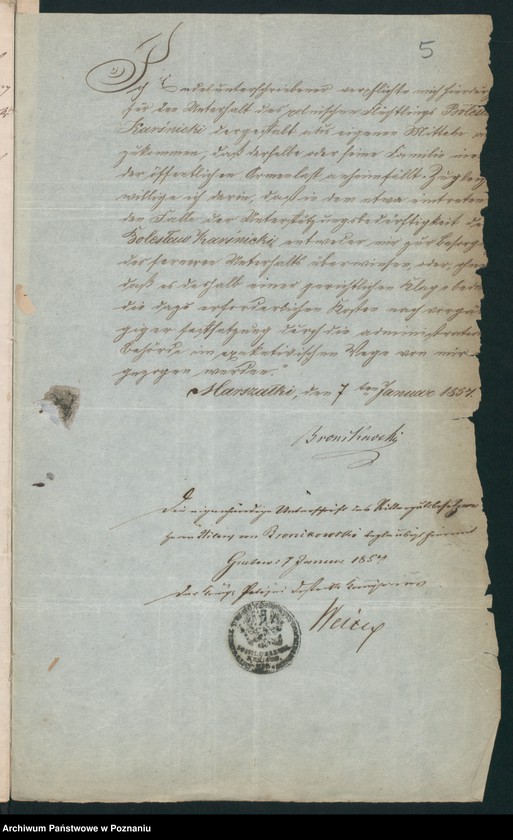 5
Ich Endesunterschriebener verpflichte mich hierdurch
für den Unterhalt des polnischen Flüchtlings Boles
Karśnicki dergestalt aus eigenen Mitteln
zukommen, daß derselbe oder seine Familie
der öffentlichen Armenlast anheimfällt. Zugleich
willige ich darin, daß in dem etwa eintreten
den Falle der Unterstützungsbedürftigkeit de
Boleslaus Karśnicki entweder mir zur Besorg
des ferneren Unterhalts überwiesen, oder, ohne
daß es deshalb einer gerichtlichen Klage bed
die dazu erforderlichen Kosten nach vorgä
giger Festsetzung durch die administrative
Behörde im exekutivischen Wege von mir
gezogen werden."
Marszałki, den 7ten Januar 1857.
Bronikowski
Die eigenhändige Unterschrift des Rittergutsbesitzer
Herrn von Bronikowski beglaubigt hiermit
Grabow 7 Januar 1857
Der Königl. Polizei Distrikts Commissarius
Archiwum Państwowe w Poznaniu